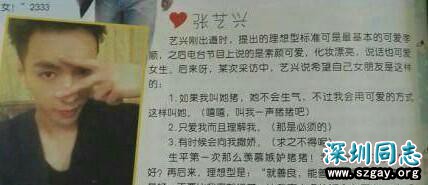 女!” 2333
艺兴
艺兴刚出道时，提出的理想型标准可是最基本的可爱孝
顺，之后电台节目上说的是素颜可爱，化妆漂亮，说话也可爱
女生。后来呀，某次采访中，艺兴说希望自己女朋友是这样
的：
1.如果我叫她猪，她不会生气，不过我会用可爱的方式
这样叫她。（嘻嘻，叫我一声猪猪吧）
2.只爱我而且理解我。（那是必须的）
3.有时候会向我撒娇。（求之不得呢）
生平第一次那么羡慕嫉妒猪猪！
好？再后来，理想型是，“就善良，能
深圳同志
www.szgay.org